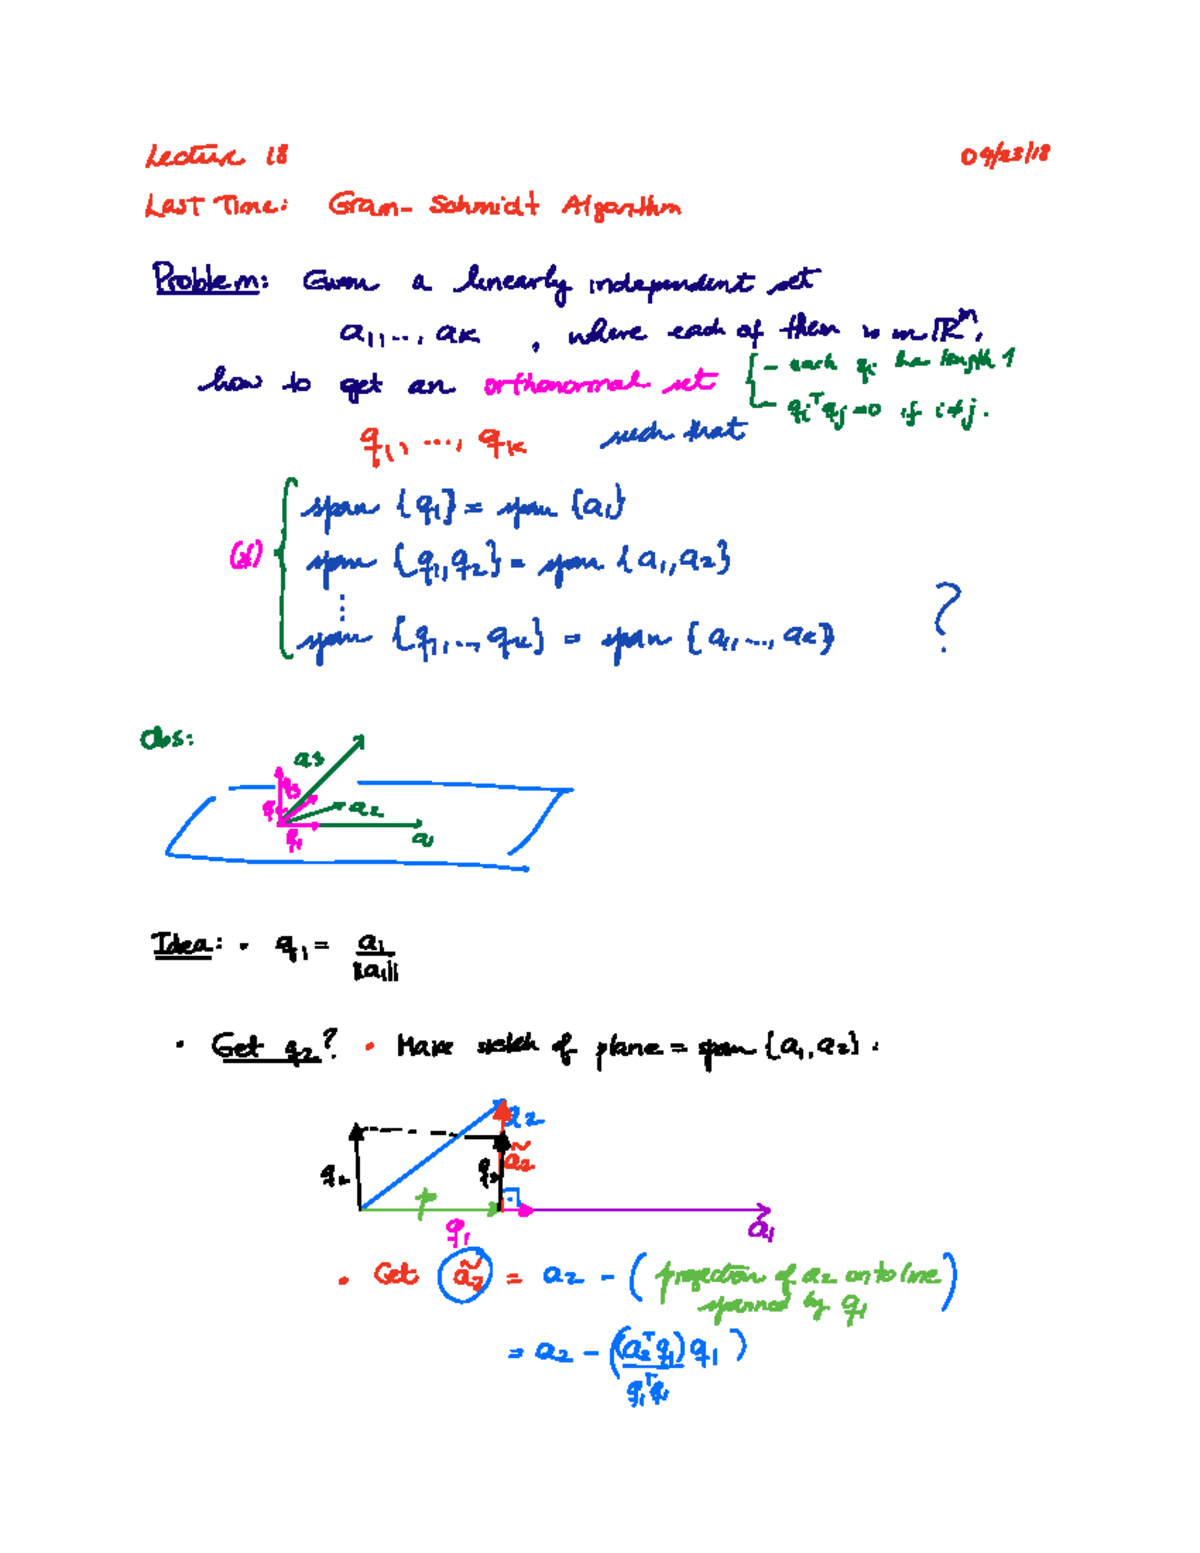 Lecture 18 09/23/18
Last Time: Gram-Schmidt Algorithm
Problem: Given a linearly independent set
a₁,..., aₖ, where each of them is in ℝᵐ,
how to get an orthonormal set { - each qᵢ has length 1
- qᵢᵀqⱼ=0 if i≠j.
q₁, ..., qₖ such that
(*) { span {q₁} = span {a₁}
span {q₁,q₂} = span {a₁,a₂}
⋮
span {q₁,...,qₖ} = span {a₁,...,aₖ} ?
Obs:
a₃
q₃
a₂
q₁
a₁
Idea: • q₁ = a₁/||a₁||
• Get q₂? • Make sketch of plane = span {a₁,a₂}:
a₂
q₂ q₂ ã₂
p
q₁ a₁
• Get ã₂ = a₂ - (projection of a₂ onto line
spanned by q₁)
= a₂ - ((a₂ᵀq₁)/(q₁ᵀq₁) q₁)